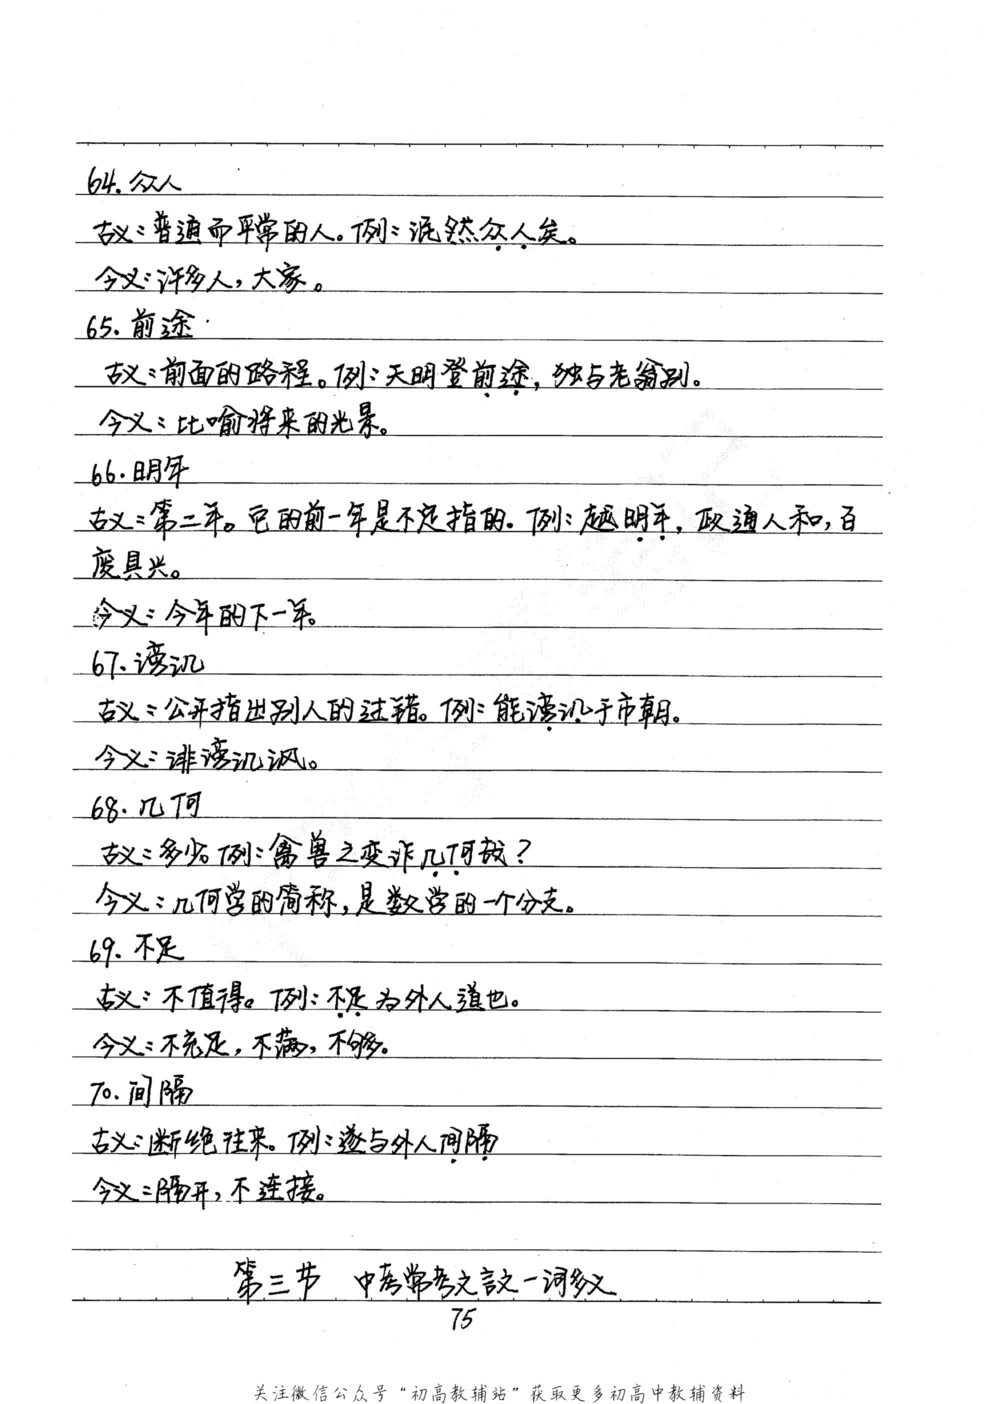 64.众人
古义:普通而平常的人。例:泯然众人矣。
今义:许多人,大家。
65.前途
古义:前面的路程。例:天明登前途,独与老翁别。
今义:比喻将来的光景。
66.明年
古义:第二年。它的前一年是不定指的.例:越明年,政通人和,百
废具兴。
今义:今年的下一年。
67.谤讥
古义:公开指出别人的过错。例:能谤讥于市朝。
今义:诽谤讥讽。
68.几何
古义:多少。例:禽兽之变诈几何哉?
今义:几何学的简称,是数学的一个分支。
69.不足
古义:不值得。例:不足为外人道也。
今义:不充足,不满,不够。
70.间隔
古义:断绝往来。例:遂与外人间隔
今义:隔开,不连接。
第三节 中考常考文言文一词多义
75
关注微信公众号“初高教辅站”获取更多初高中教辅资料